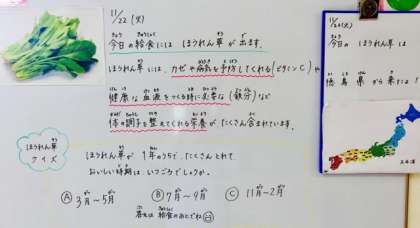 11/22(火)
今日の給食には ほうれん草が 出ます。
ほうれん草には、カゼや病気を予防してくれる(ビタミンC)や
健康な血液をつくる時に必要な(鉄分)など
体の調子を整えてくれる栄養が たくさん含まれています。
ほうれん草
クイズ
ほうれん草が 1年のうちで、たくさんとれて、
おいしい時期は いつごろでしょうか。
Ⓐ 3月〜5月
Ⓑ 7月〜9月
Ⓒ 11月〜2月
答えは 給食のあとでね
11/22(火)
今日の ほうれん草は
徳島県から来たよ!
北海道